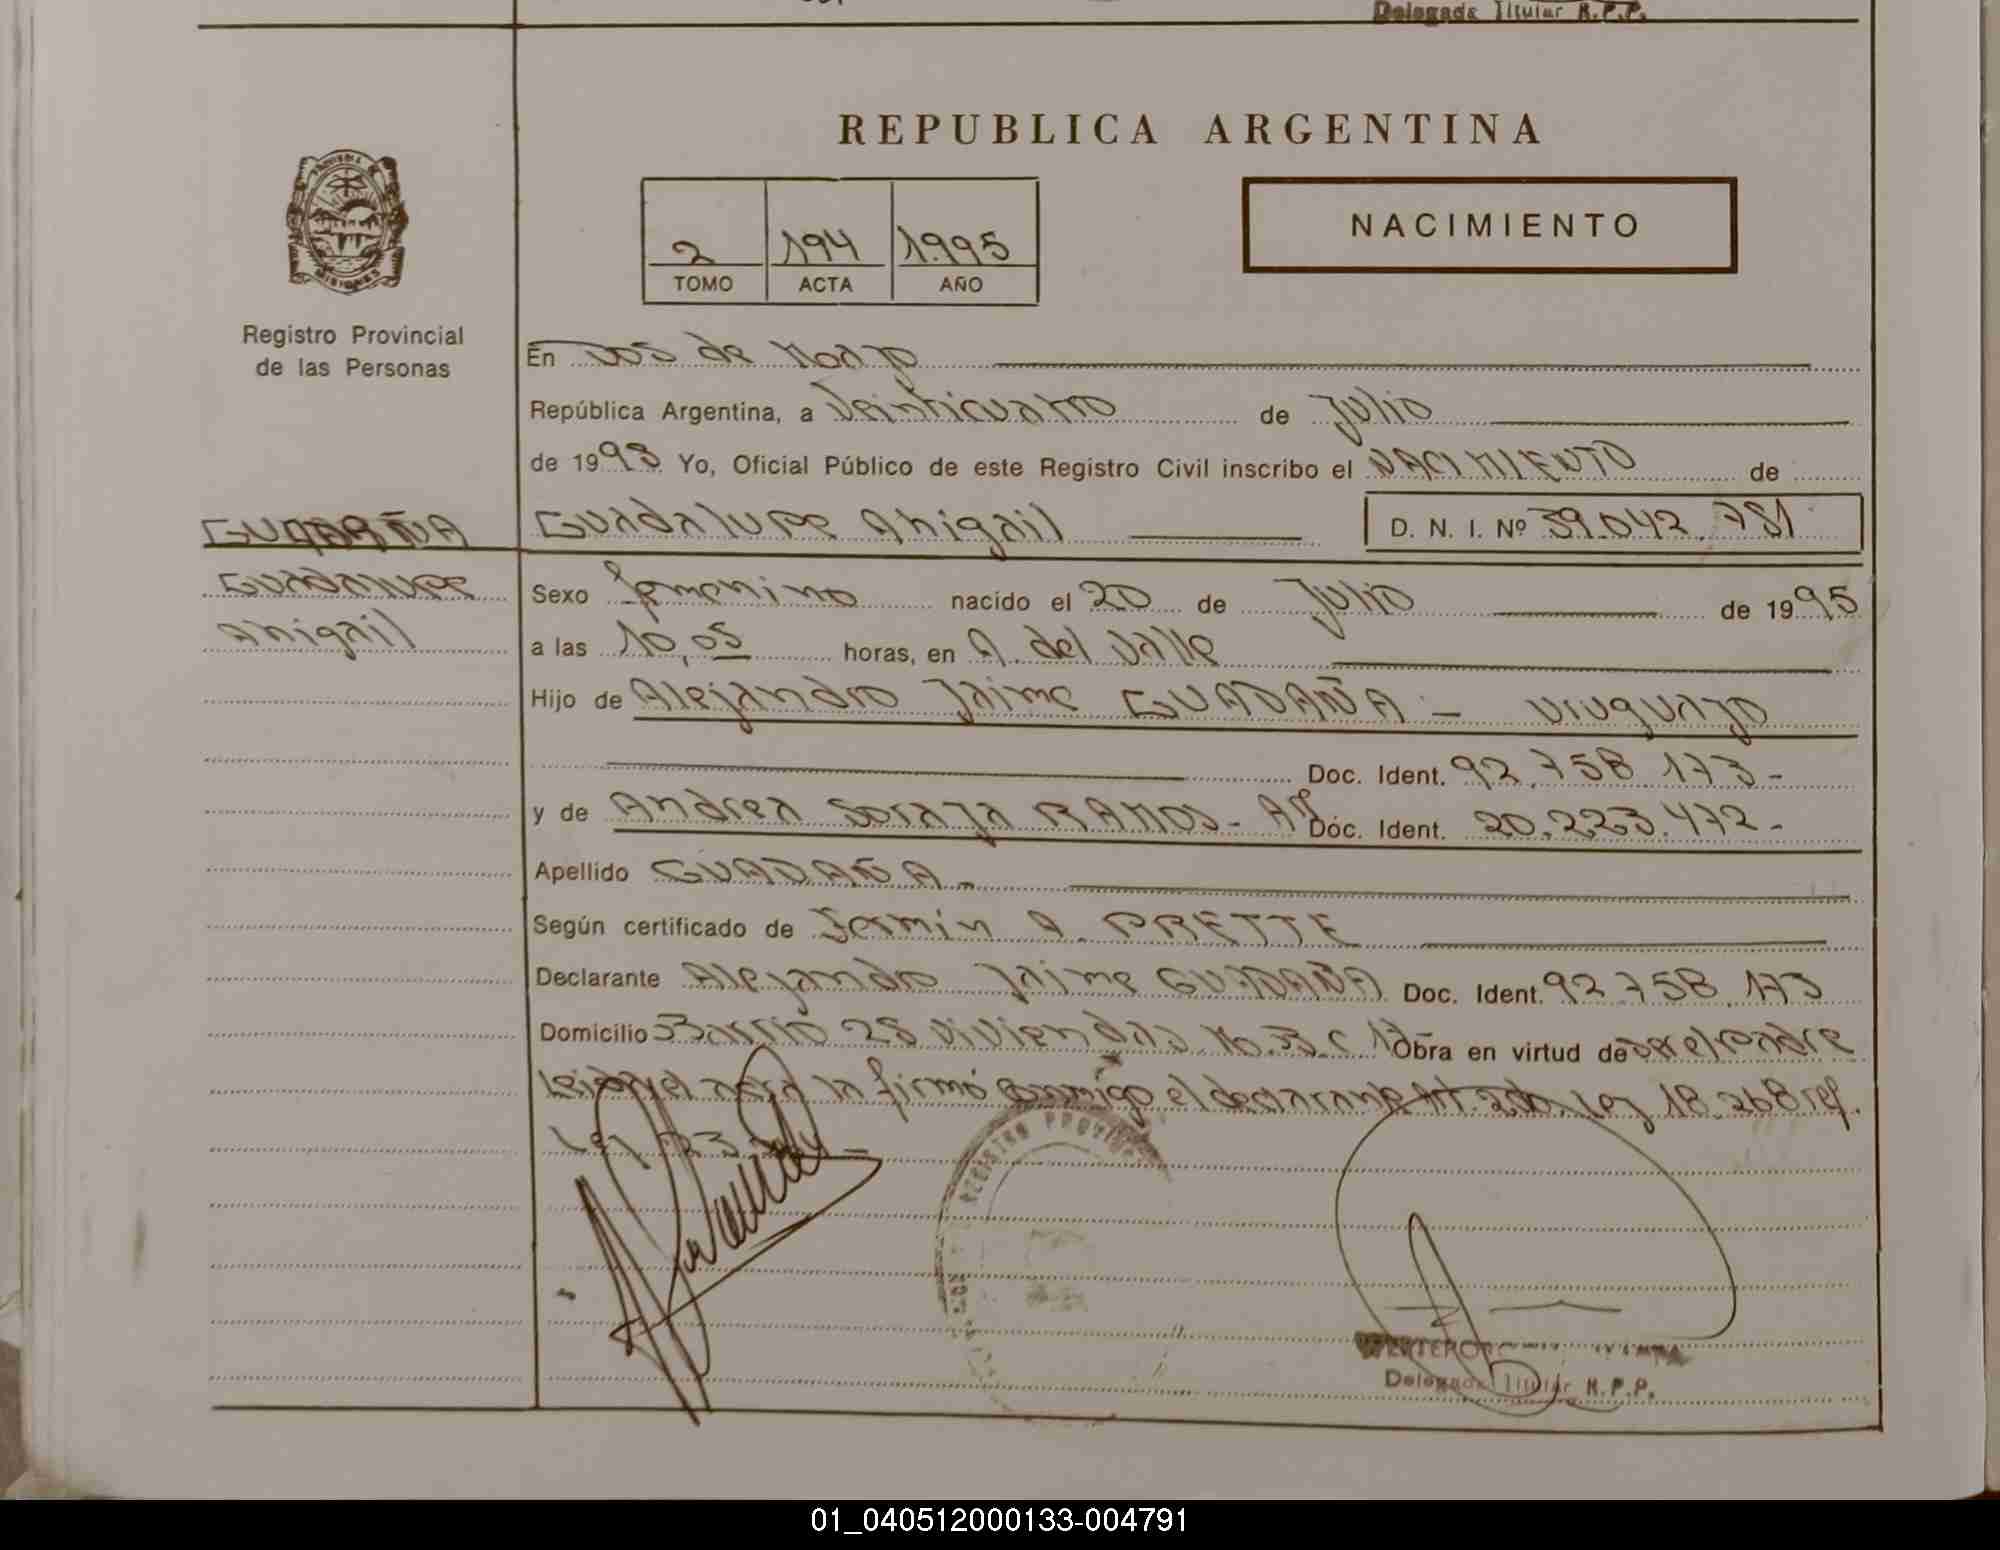 Delegada Titular R.P.P.
REPUBLICA ARGENTINA
NACIMIENTO
2 194 1.995
TOMO ACTA AÑO
MISIONES
Registro Provincial
de las Personas
En Dos de Mayo
República Argentina, a Veinticuatro de Julio
de 1995 Yo, Oficial Público de este Registro Civil inscribo el NACIMIENTO de
GUADAÑA Guadalupe Abigail D. N. I. Nº 39.042.781
Guadalupe
Abigail
Sexo femenino nacido el 20 de Julio de 1995
a las 10,05 horas, en A. del Valle
Hijo de Alejandro Jaime GUADAÑA - uruguayo
Doc. Ident. 92.758.173-
y de Andrea Soraya RAMOS- Arg Doc. Ident. 20.223.472-
Apellido GUADAÑA-
Según certificado de Fermin A. PRETTE
Declarante Alejandro Jaime GUADAÑA Doc. Ident. 92.758.173
Domicilio Barrio 28 Viviendas Obra en virtud de ser el Padre
Leida el acta la firmó conmigo el declarante Ley 18.268 ref.
REGISTRO PROVINCIAL
Delegada Titular R.P.P.
01_040512000133-004791